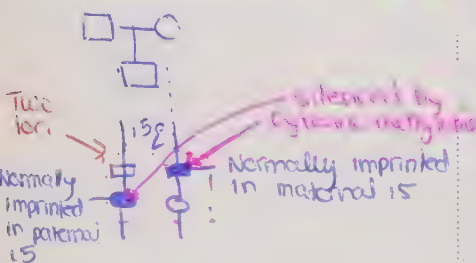 Two
loci
15q
silenced by
Cytosine methylation
Normally imprinted
in maternal 15
Normally
imprinted
in paternal
15